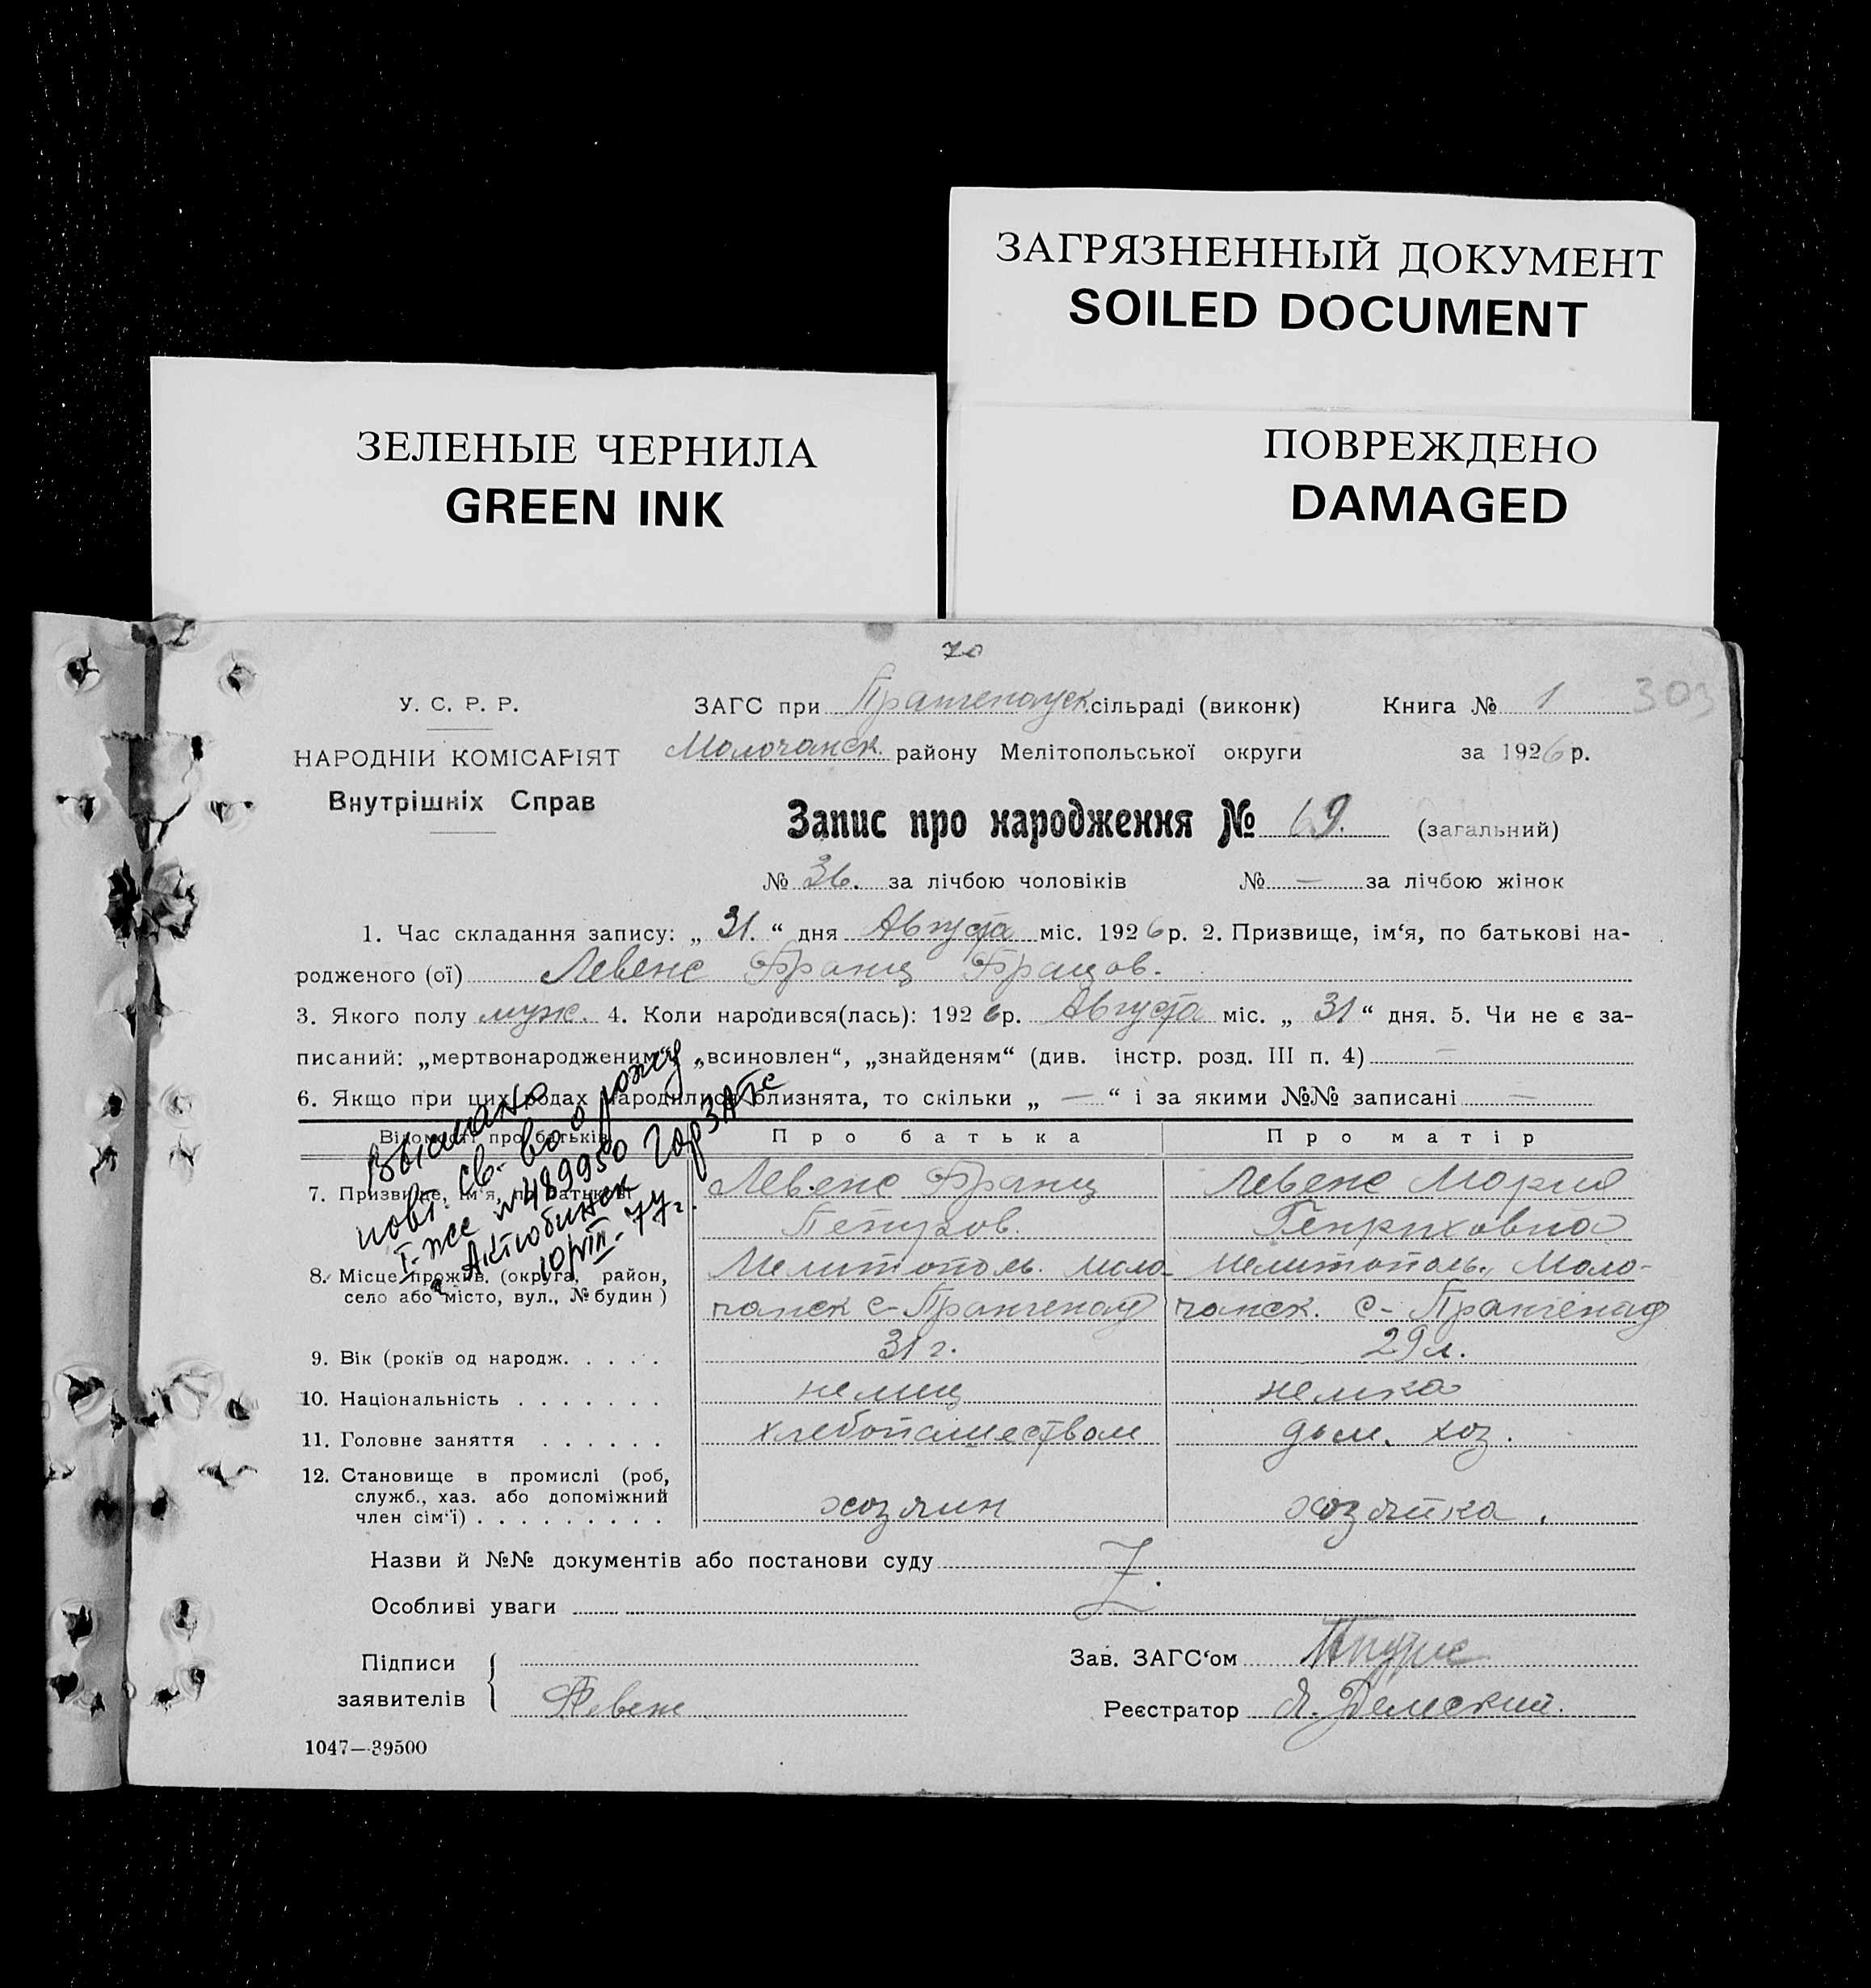 ЗАГРЯЗНЕННЫЙ ДОКУМЕНТ
SOILED DOCUMENT
ЗЕЛЕНЫЕ ЧЕРНИЛА
GREEN INK
ПОВРЕЖДЕНО
DAMAGED
70
У. С. Р. Р.
НАРОДНІЙ КОМІСАРІЯТ
Внутрішніх Справ
ЗАГС при Прангенауск. сільраді (виконк) Книга № 1 303
Молочанск. району Мелітопольської округи за 1926 р.
Запис про народження № 69. (загальний)
№ 36. за лічбою чоловіків № — за лічбою жінок
1. Час складання запису: „ 31. “ дня Августа міс. 1926 р. 2. Призвище, ім‘я, по батькові на-
родженого (ої) Левенс Франц Францов.
3. Якого полу муж. 4. Коли народився(лась): 1926 р. Августа міс. „ 31 “ дня. 5. Чи не є за-
писаний: „мертвонародженим“, „всиновлен“, „знайденям“ (див. інстр. розд. III п. 4) —
6. Якщо при цих родах народилися близнята, то скільки „ — “ і за якими №№ записані —
Відомості про батьків Про батька Про матір
7. Призвище, ім‘я, по батькові Левенс Франц Левенс Мария
Петров. Генриховна
8. Місце прожив. (округа, район, Мелитополь. Моло- Мелитополь., Моло-
село або місто, вул., № будин) чанск с-Прангенау чанск. с-Прангенау
9. Вік (років од народж. . . . . 31 г. 29 л.
10. Національність . . . . . . . немец немка
11. Головне заняття . . . . . . хлебопашеством дом. хоз.
12. Становище в промислі (роб,
служб., хаз. або допоміжний
член сім‘ї) . . . . . . . . . хозяин хозяйка.
Выдано
повт. св-во о рожд
I-ЖС №489950
Актюбинск ГорЗАГС
10/VIII-77г.
Назви й №№ документів або постанови суду
Особливі уваги
Підписи
заявителів Левенс
Зав. ЗАГС‘ом
Реєстратор
1047—39500